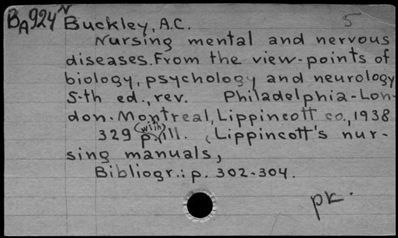 BA924N Buckley, A.C. 5
Nursing mental and nervous
diseases. From the view-points of
biology, psychology and neurology
5-th ed., rev. Philadelphia-Lon-
don-Montreal, Lippincott co., 1938
329 p. with ill. (Lippincott's nur-
sing manuals,
Bibliogr.: p. 302-304.
pk.